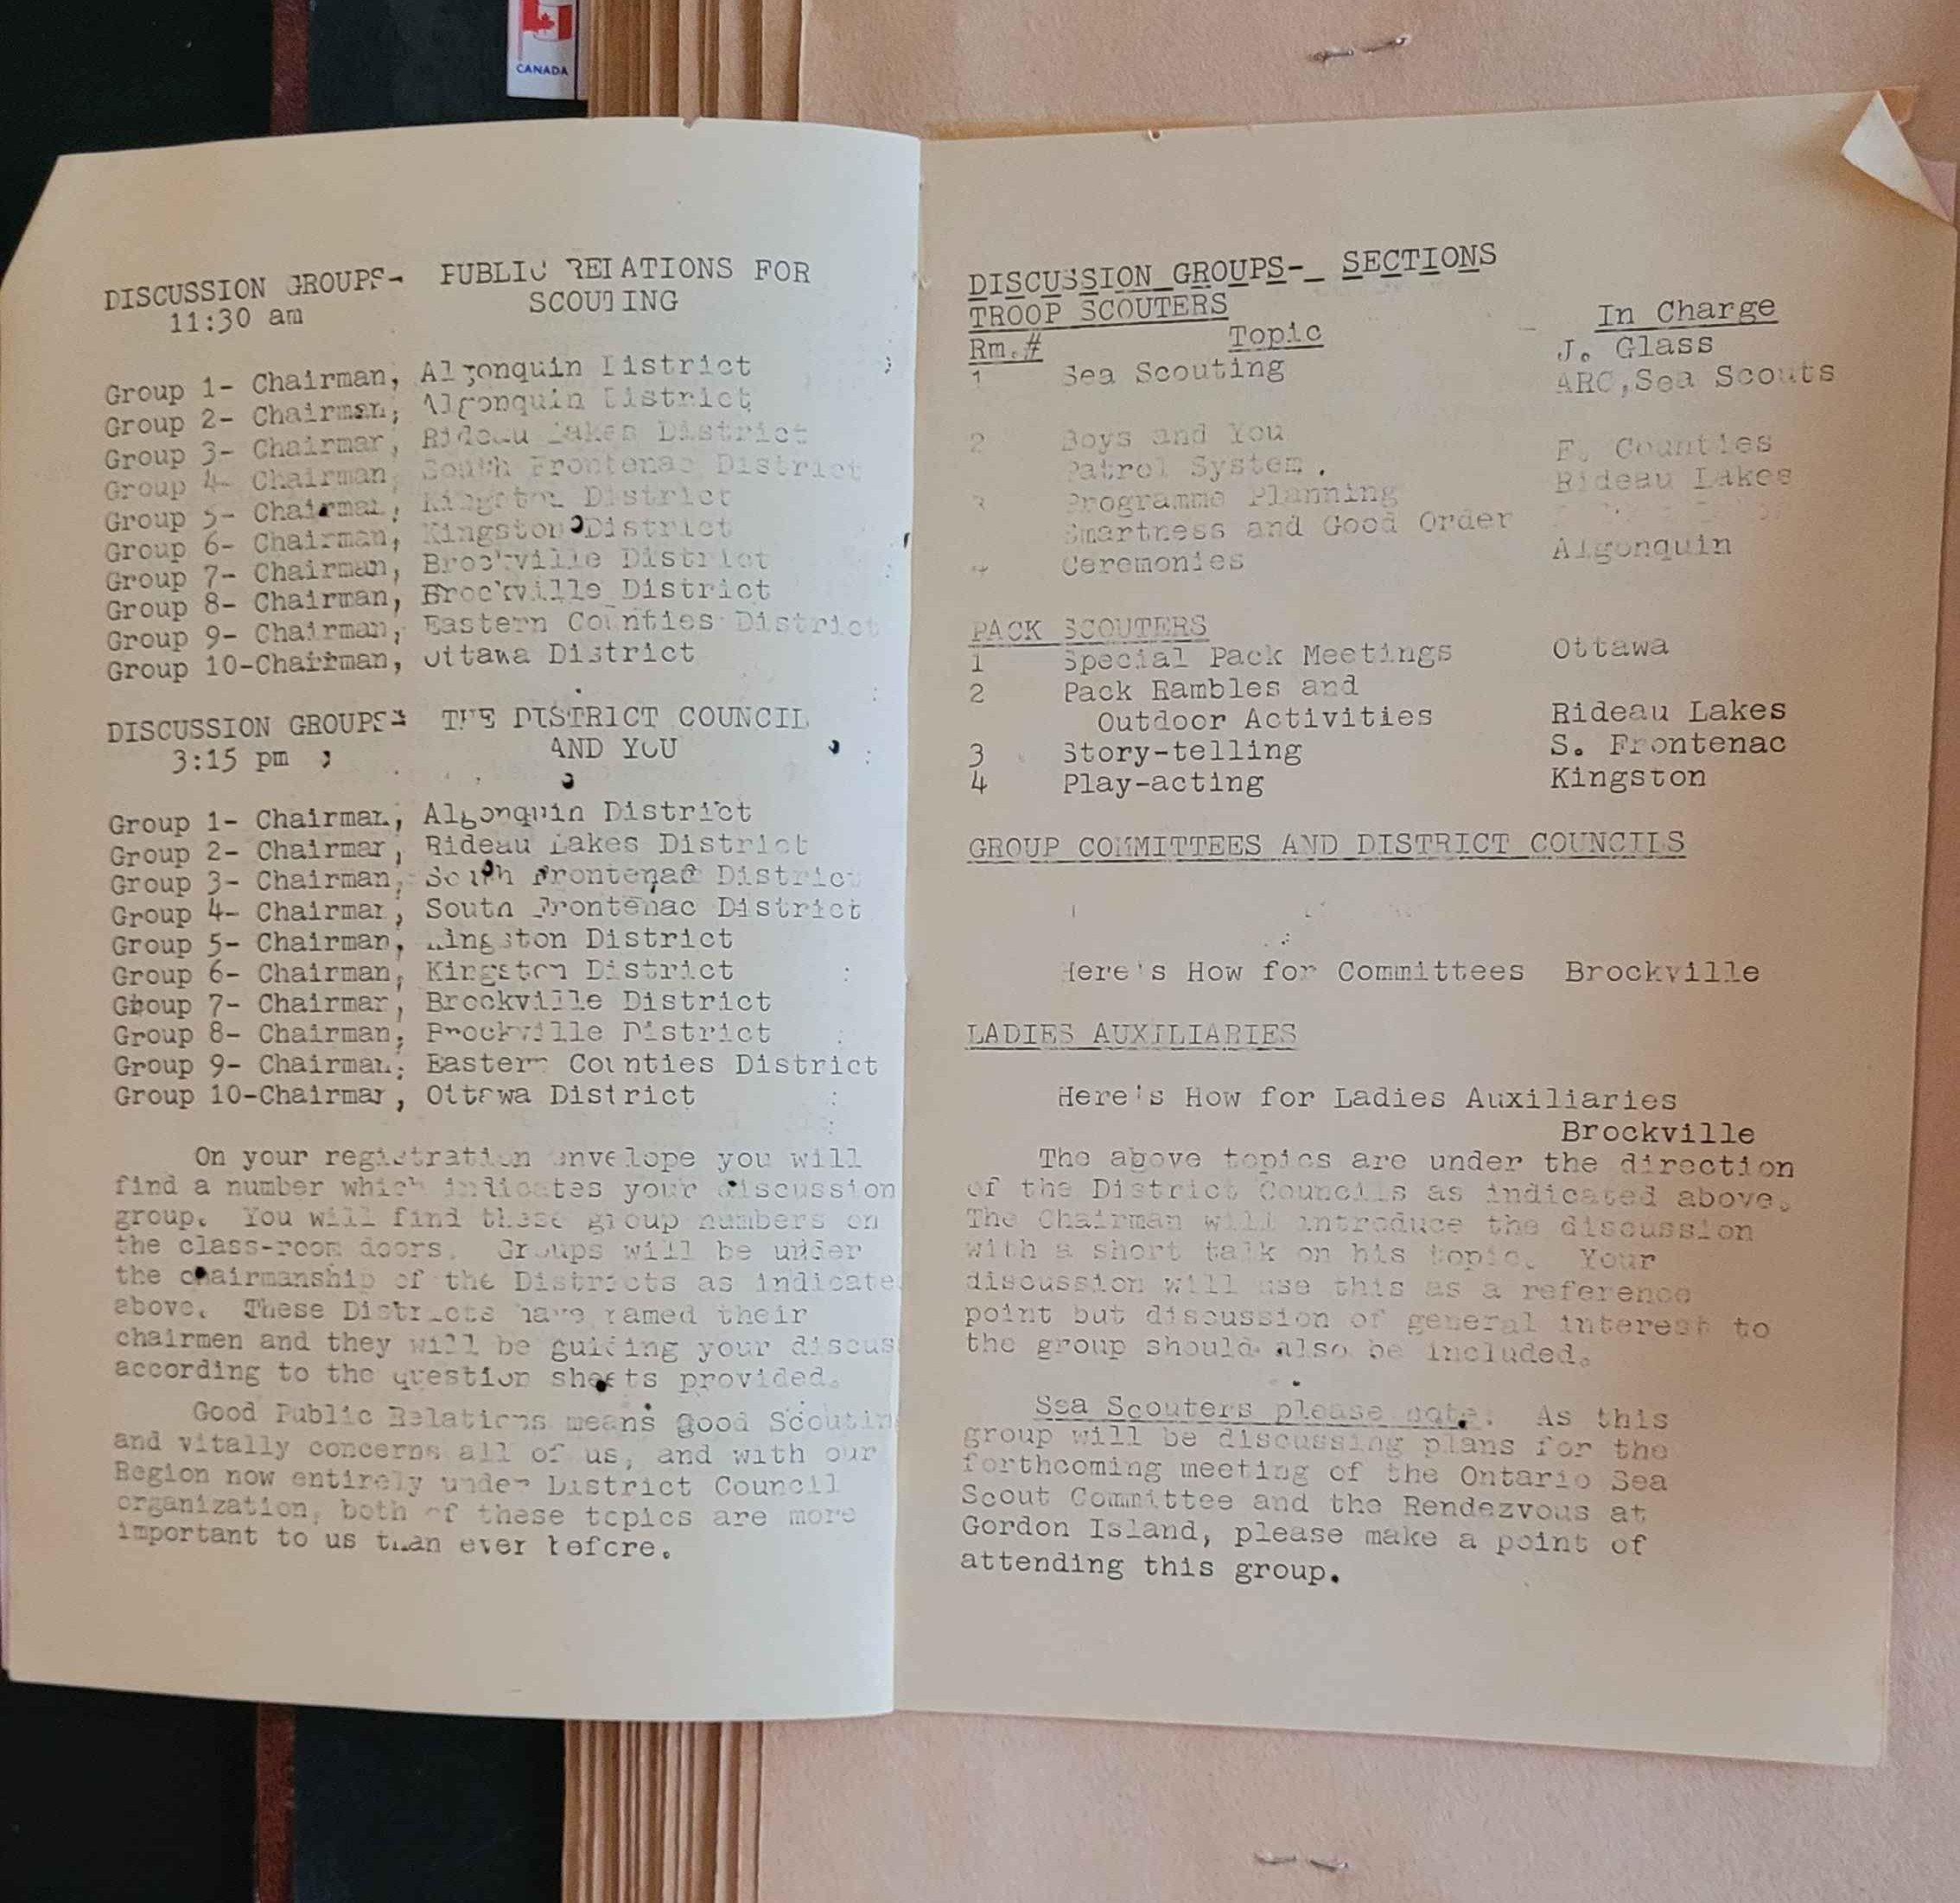 CANADA
DISCUSSION GROUPS- PUBLIC RELATIONS FOR
SCOUTING
11:30 am
Group 1- Chairman, Algonquin District
Group 2- Chairman, Algonquin District
Group 3- Chairman, Rideau Lakes District
Group 4- Chairman, South Frontenac District
Group 5- Chairman, Kingston District
Group 6- Chairman, Kingston District
Group 7- Chairman, Brockville District
Group 8- Chairman, Brockville District
Group 9- Chairman, Eastern Counties District
Group 10-Chairman, Ottawa District
DISCUSSION GROUPS- THE DISTRICT COUNCIL
AND YOU
3:15 pm
Group 1- Chairman, Algonquin District
Group 2- Chairman, Rideau Lakes District
Group 3- Chairman, South Frontenac District
Group 4- Chairman, South Frontenac District
Group 5- Chairman, Kingston District
Group 6- Chairman, Kingston District
Group 7- Chairman, Brockville District
Group 8- Chairman, Brockville District
Group 9- Chairman, Eastern Counties District
Group 10-Chairman, Ottawa District
On your registration envelope you will
find a number which indicates your discussion
group. You will find these group numbers on
the class-room doors. Groups will be under
the chairmanship of the Districts as indicate
above. These Districts have named their
chairmen and they will be guiding your discus
according to the question sheets provided.
Good Public Relations means good Scoutin
and vitally concerns all of us, and with our
Region now entirely under District Council
organization, both of these topics are more
important to us than ever before.
DISCUSSION GROUPS- SECTIONS
TROOP SCOUTERS
Rm.# Topic In Charge
1 Sea Scouting J. Glass
ARC,Sea Scouts
2 Boys and You E. Counties
Patrol System. Rideau Lakes
3 Programme Planning
Smartness and Good Order
4 Ceremonies Algonquin
PACK SCOUTERS
1 Special Pack Meetings Ottawa
2 Pack Rambles and
Outdoor Activities Rideau Lakes
3 Story-telling S. Frontenac
4 Play-acting Kingston
GROUP COMMITTEES AND DISTRICT COUNCILS
Here's How for Committees Brockville
LADIES AUXILIARIES
Here's How for Ladies Auxiliaries
Brockville
The above topics are under the direction
of the District Councils as indicated above.
The Chairman will introduce the discussion
with a short talk on his topic. Your
discussion will use this as a reference
point but discussion of general interest to
the group should also be included.
Sea Scouters please note. As this
group will be discussing plans for the
forthcoming meeting of the Ontario Sea
Scout Committee and the Rendezvous at
Gordon Island, please make a point of
attending this group.